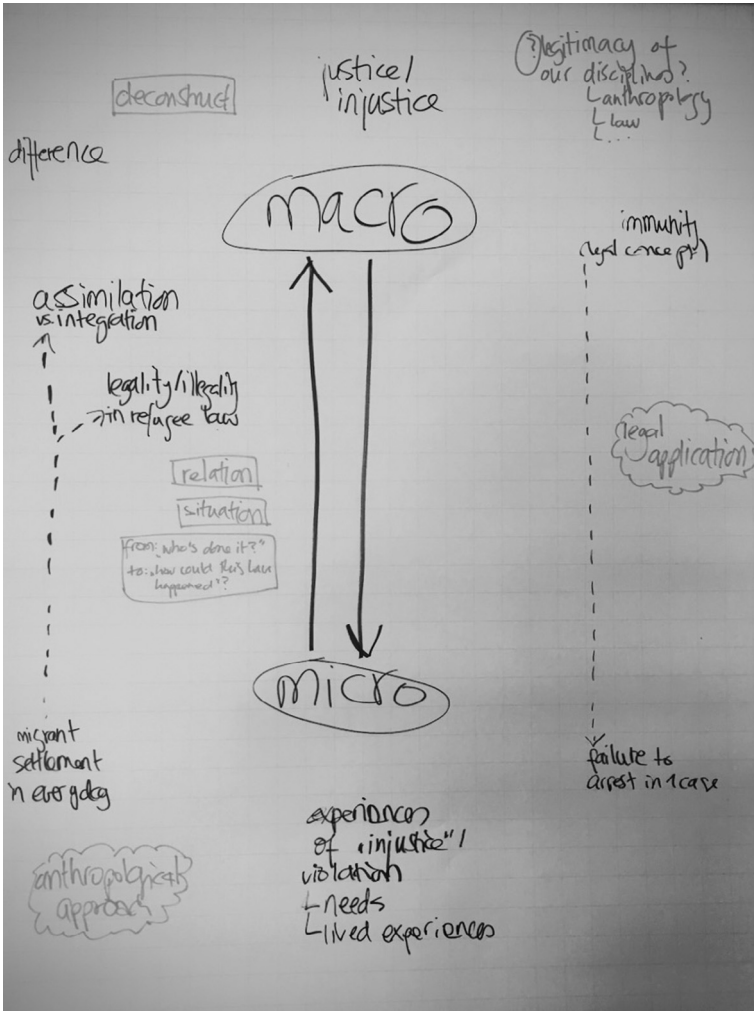 deconstruct
justice/
injustice
(?) legitimacy of
our disciplines?
└anthropology
└law
└...
difference
macro
immunity
(legal concept)
assimilation
vs. integration
legality/illegality
in refugee law
legal
application
relation
situation
from: „who's done it?"
to: „how could this have
happened"?
micro
migrant
settlement
in everyday
failure to
arrest in 1 case
experiences
of „injustice"/
violation
└needs
└lived experiences
anthropological
approach